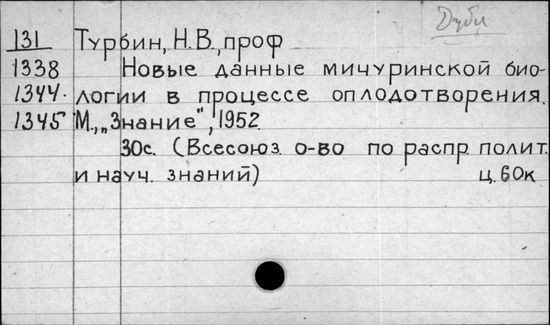 Дубл
131 Турбин, Н.В., проф
1338 Новые данные мичуринской био-
1344. логии в процессе оплодотворения.
1345 М., „Знание", 1952.
30с. (Всесоюз. о-во по распр. полит.
и науч. знаний) ц. 60к